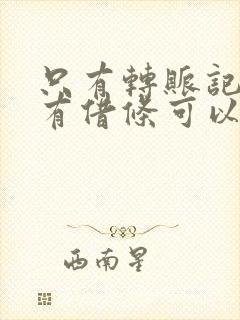 只有轉賬記
有借條可以
西南星